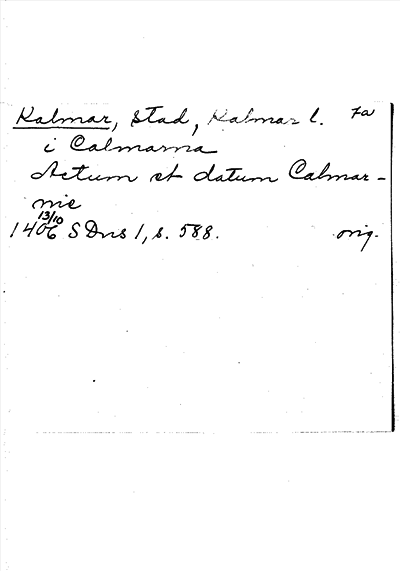 Kalmar, stad, Kalmar l. Fa
i Calmarna
Actum et datum Calmar-
nie
13/10
1406 SDns 1, s. 588. orig.